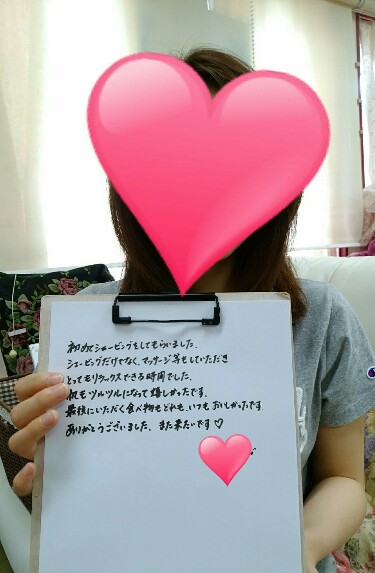 初めてシェービングをしてもらいました。
シェービングだけでなく、マッサージ等もしていただき
とってもリラックスできる時間でした。
肌もツルツルになって嬉しかったです。
最後にいただく食べ物もどれも、いつもおいしかったです
ありがとうございました。また来たいです♡